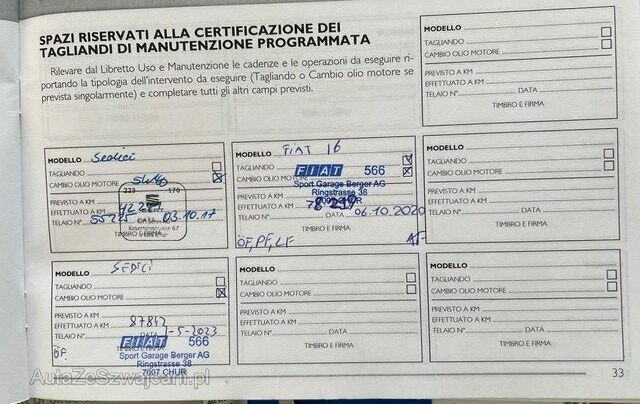 SPAZI RISERVATI ALLA CERTIFICAZIONE DEI
TAGLIANDI DI MANUTENZIONE PROGRAMMATA
Rilevare dal Libretto Uso e Manutenzione le cadenze e le operazioni da eseguire ri-
portando la tipologia dell'intervento da eseguire (Tagliando o Cambio olio motore se
prevista singolarmente) e completare tutti gli altri campi previsti.
MODELLO
TAGLIANDO
CAMBIO OLIO MOTORE
PREVISTO A KM
EFFETTUATO A KM
TELAIO N° DATA
TIMBRO E FIRMA
MODELLO Sedici
TAGLIANDO
CAMBIO OLIO MOTORE 5W40
223 170
PREVISTO A KM
EFFETTUATO A KM
TELAIO N° 03.10.17
Kasernenstrasse 67
TIMBRO E FIRMA
MODELLO FIAT 16
TAGLIANDO FIAT 566
CAMBIO OLIO MOTORE
Sport Garage Berger AG
Ringstrasse 38
7000 CHUR
PREVISTO A KM
EFFETTUATO A KM
TELAIO N° DATA 06.10.2020
TIMBRO E FIRMA
ÖF, PF, LF
MODELLO
TAGLIANDO
CAMBIO OLIO MOTORE
PREVISTO A KM
EFFETTUATO A KM
TELAIO N° DATA
TIMBRO E FIRMA
MODELLO SEDICI
TAGLIANDO
CAMBIO OLIO MOTORE
PREVISTO A KM
EFFETTUATO A KM 87842
TELAIO N° DATA -5-2023
TIMBRO E FIRMA
ÖF.
FIAT 566
Sport Garage Berger AG
Ringstrasse 38
7007 CHUR
MODELLO
TAGLIANDO
CAMBIO OLIO MOTORE
PREVISTO A KM
EFFETTUATO A KM
TELAIO N° DATA
TIMBRO E FIRMA
MODELLO
TAGLIANDO
CAMBIO OLIO MOTORE
PREVISTO A KM
EFFETTUATO A KM
TELAIO N° DATA
TIMBRO E FIRMA
33
AutaZeSzwajcarii.pl